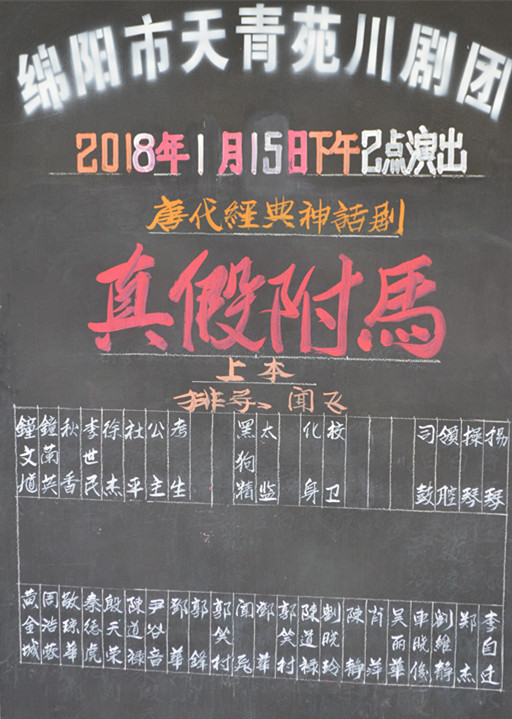 绵阳市天青苑川剧团
2018年1月15日下午2点演出
唐代經典神話剧
真假附馬
上本
排导、闻飞
鐘文馗
鐘蘭英
秋香
李世民
徐杰
社平
公主
考生
黑狗精
太监
化身
校卫
司鼓
领腔
操琴
扬琴
黄金城
周浩蓉
敏琼華
秦德虎
殷天荣
陳道禄
尹谷音
邓華
郭鋒
郭笑村
闻飞
邓華
郭笑村
陳道禄
劉晓玲
陳静
肖萍
吴丽華
車晓俊
劉維静
郑杰
李自迁